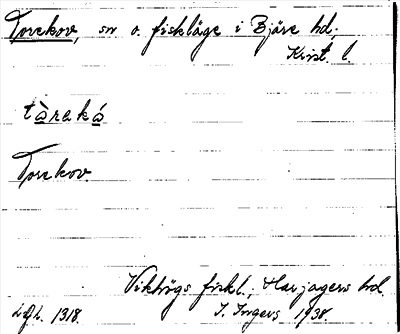 Torekov, sn o. fiskläge i Bjäre hd,
Krist. l.
tàrekå
Torekov.
Vikhögs fiskl., Harjagers hd.
1318. I. Ingers 1938.